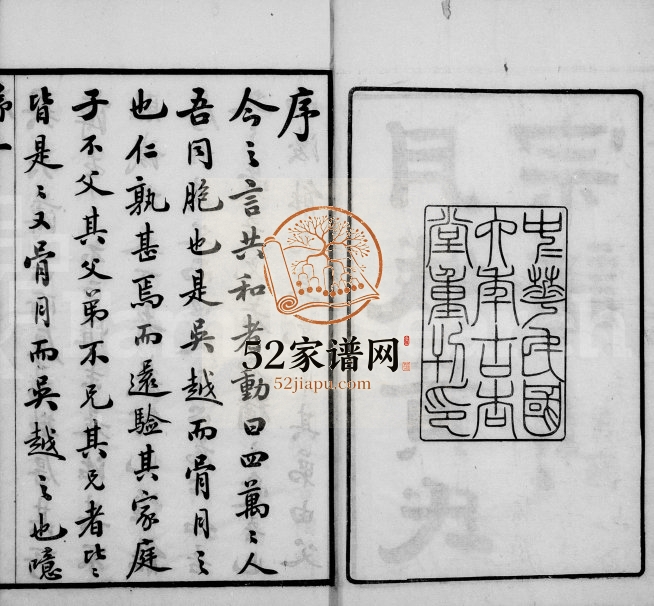 中華民國
六年古杏
堂重刊印
序
今之言共和者動曰四萬〻人
吾同胞也是吳越而骨月之
也仁孰甚焉而還驗其家庭
子不父其父弟不兄其兄者比〻
皆是〻又骨月而吳越之也噫
序一
52家谱网
52jiapu.com